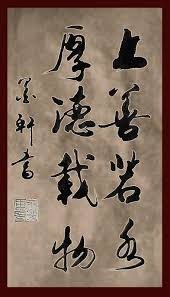 上善若水
厚德載物
墨軒書